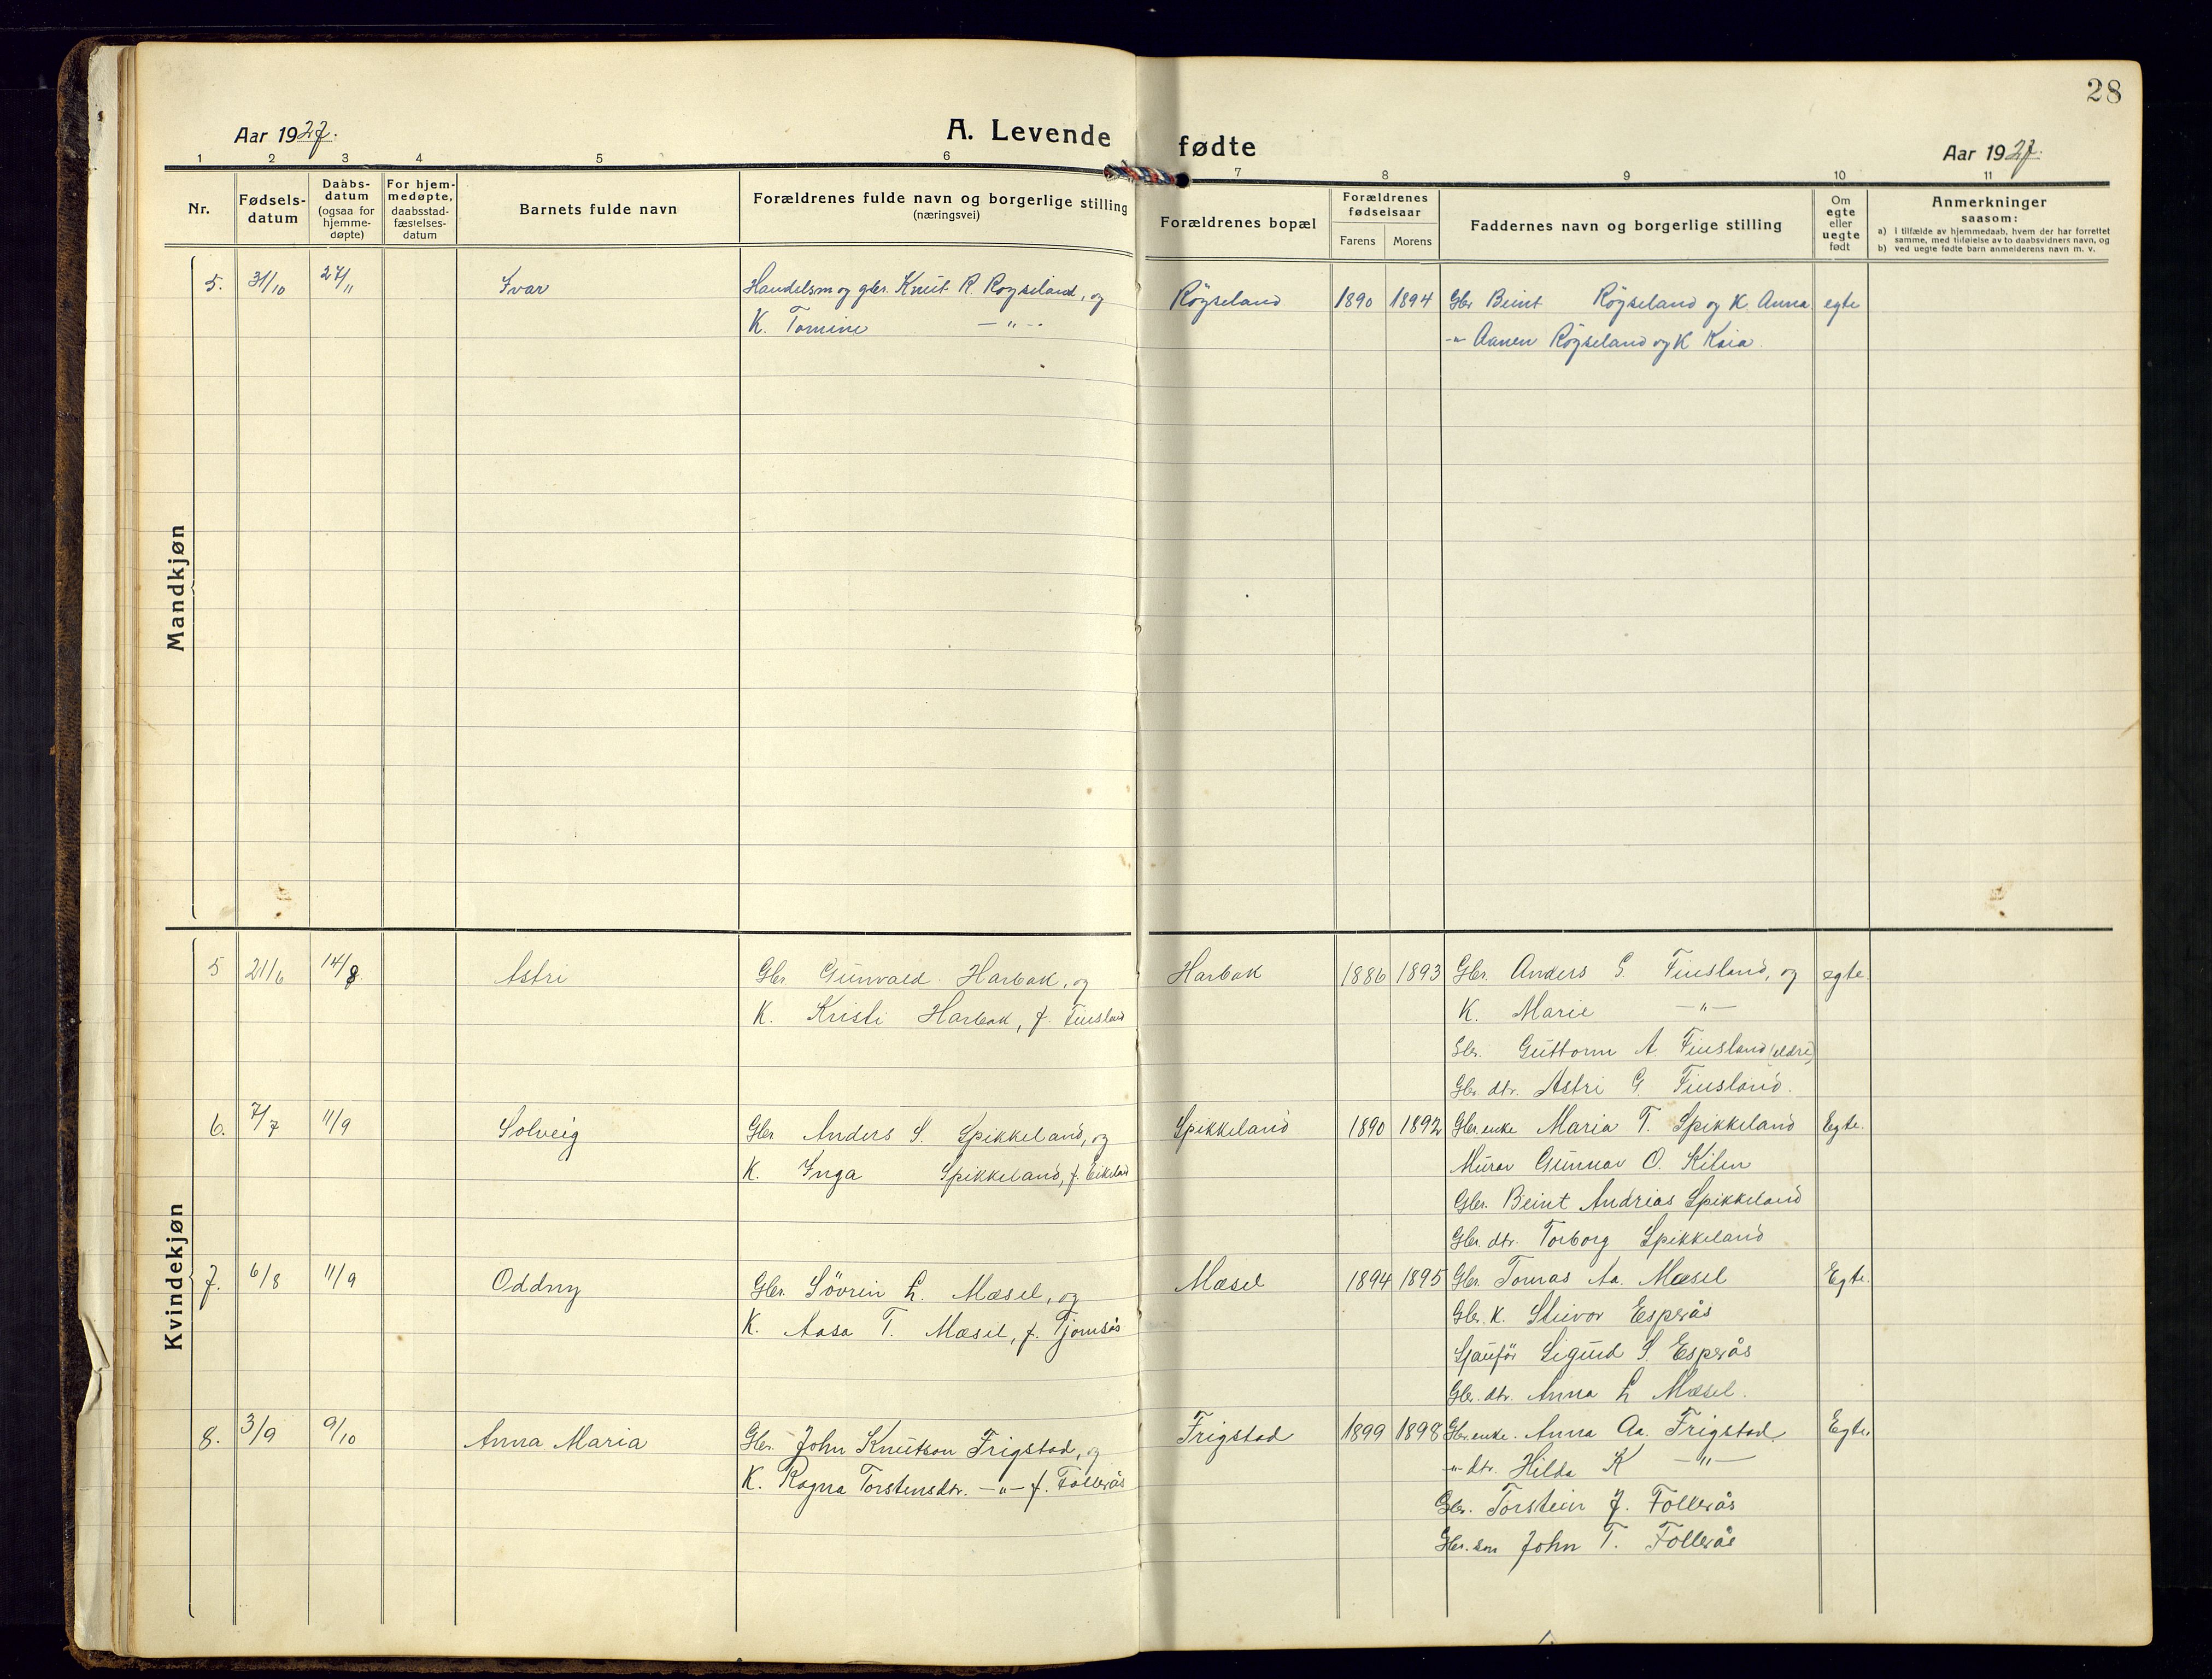 28
Aar 1927.
A. Levende fødte
Aar 1927.
1 2 3 4 5 6 7 8 9 10 11
Nr.
Fødsels-
datum
Daabs-
datum
(ogsaa for
hjemme-
døpte)
For hjem-
medøpte,
daabsstad-
fæstelses-
datum
Barnets fulde navn
Forældrenes fulde navn og borgerlige stilling
(næringsvei)
Forældrenes bopæl
Forældrenes
fødselsaar
Farens Morens
Faddernes navn og borgerlige stilling
Om
egte
eller
uegte
født
Anmerkninger
saasom:
a) I tilfælde av hjemmedaab, hvem der har forrettet
samme, med tilføielse av to daabsvidners navn, og
b) ved uegte fødte barn anmelderens navn m. v.
Mandkjøn
5. 31/10 27/11 Ivar Handelsm og gbr. Knut R. Røyseland, og Röyseland 1890 1894 Gbr Beint Röyseland og K Anna egte
K. Tomine -"- -"- Aanen Röyseland og K Kaia.
Kvindekjøn
5 21/6 14/8 Astri Gbr. Gunvald Harbak, og Harbak 1886 1893 Gbr. Anders G. Finsland, og egte.
K. Kristi Harbak, f. Finsland K. Marie -"-
Gbr. Guttorm A. Finsland (eldre)
Gbr. dtr. Astri G. Finsland.
6. 7/7 11/9 Solveig Gbr Anders S. Spikkeland, og Spikkeland 1890 1892 Gbr. enke Maria T. Spikkeland Egte.
K. Inga Spikkeland, f. Eikeland Murar Gunnar O. Kilen
Gbr. Beint Andrias Spikkeland
Gbr. dtr. Torborg Spikkeland
7. 6/8 11/9 Oddny Gbr. Sövrin L. Mæsel, og Mæsel 1894 1895 Gbr. Tomas Aa. Mæsel Egte.
K. Aasa T. Mæsel, f. Tjomsås Gbr. K. Steivor Esperås
Sjauför Sigurd S. Esperås
Gbr. dtr. Anna L Mæsel.
8. 3/9 9/10 Anna Maria Gbr. John Knutson Frigstad, og Frigstad 1899 1898 Gbr. enke. Anna Aa. Frigstad Egte.
K. Ragna Torstensdtr. -"- f. Follerås -"- dtr. Hilda K -"-
Gbr. Torstein J. Follerås
Gbr. son John T. Follerås